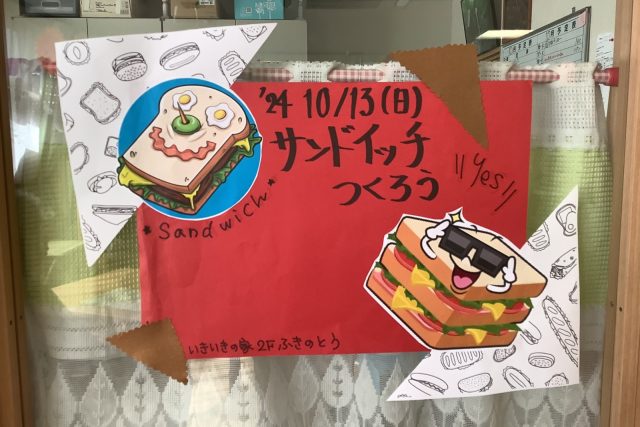 '24 10/13(日)
サンドイッチ
つくろう
"yes"
*Sandwich*
いきいきの家 2F ふきのとう